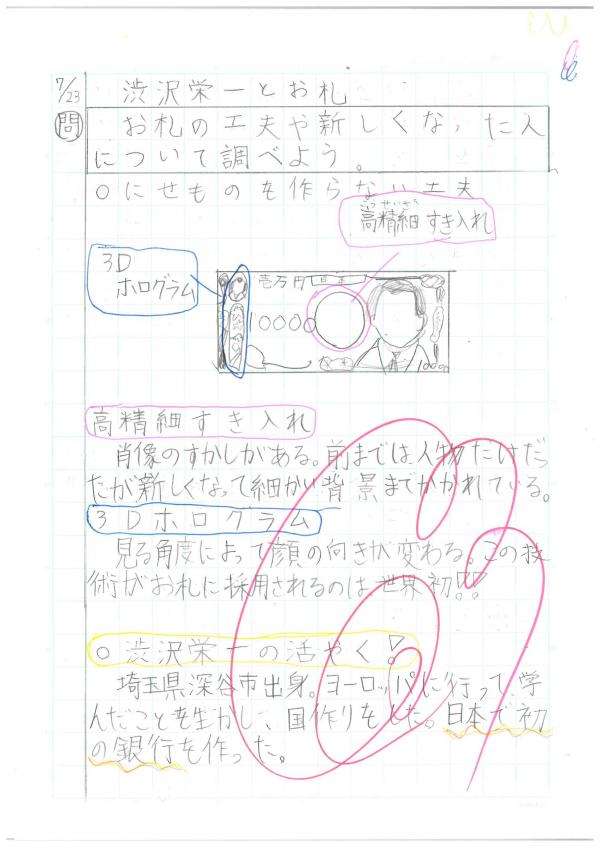 7/23
渋沢栄一とお札
問
お札の工夫や新しくなった人
について調べよう。
○にせものを作らない工夫
こうせいさい
高精細すき入れ
3D
ホログラム
壱万円
10000
10000
高精細すき入れ
肖像のすかしがある。前までは人物だけだっ
たが新しくなって細かい背景までかかれている。
3Dホログラム
見る角度によって顔の向きが変わる。この技
術がお札に採用されるのは世界初!!
○渋沢栄一の活やく!
埼玉県深谷市出身。ヨーロッパに行って、学
んだことを生かし、国作りをした。日本で初
の銀行を作った。